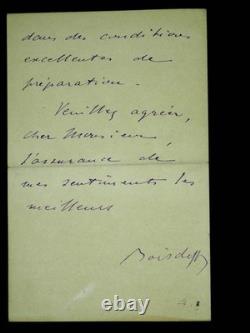 dans des conditions
excellentes de
préparation.
Veuillez agréer,
cher Monsieur,
l'assurance de
mes sentiments les
meilleurs
Boisdeffre